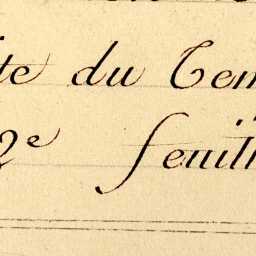 te du Tem
2e feuill